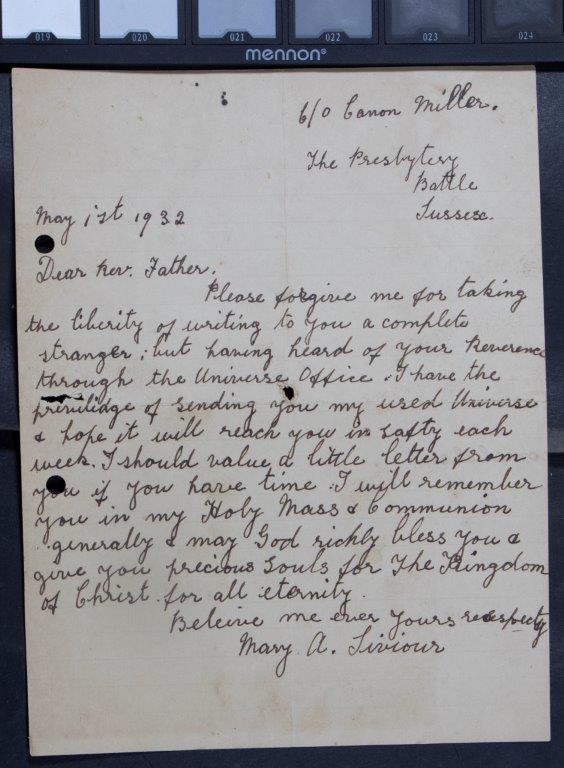 019 020 021 022 023 024
mennon®
c/o Canon Miller.
The Presbytery
Battle
Sussex.
May 1st 1932
Dear Rev. Father.
Please forgive me for taking
the liberity of writing to you a complete
stranger; but having heard of your Reverence
through the Universe Office. I have the
previlidge of sending you my used Universe
& hope it will reach you in safty each
week. I should value a little letter from
you if you have time. I will remember
you in my Holy Mass & Communion
generally & may God richly bless you &
give you precious Souls for The Kingdom
of Christ for all eternity.
Beleive me ever yours
Mary A.